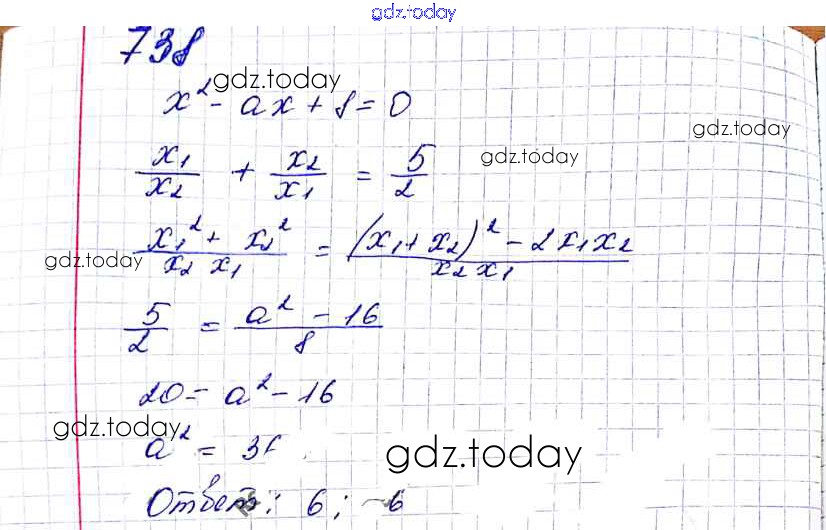 gdz.today
738
gdz.today
x² - ax + 8 = 0
gdz.today
x₁/x₂ + x₂/x₁ = 5/2
gdz.today
(x₁² + x₂²)/(x₂ x₁) = ((x₁ + x₂)² - 2x₁x₂)/(x₂ x₁)
gdz.today
5/2 = (a² - 16)/8
20 = a² - 16
gdz.today
a² = 36
gdz.today
Ответ: 6; -6